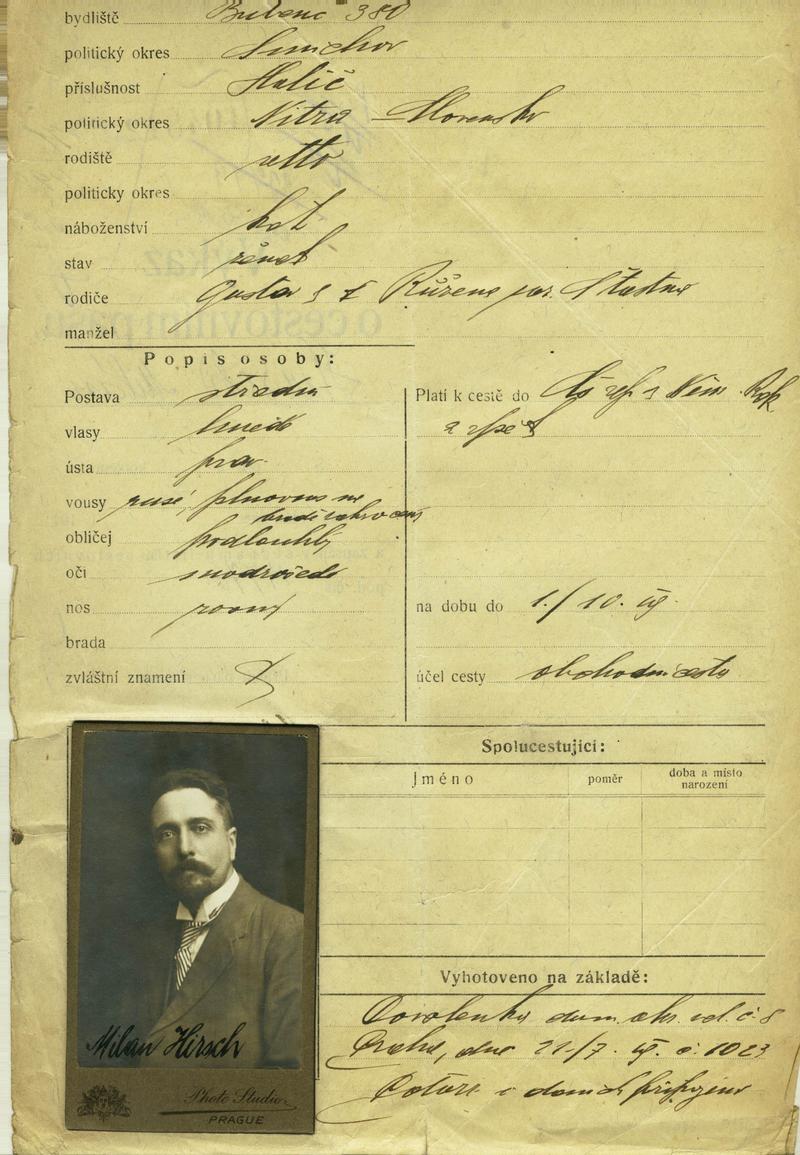 bydliště Bubenč 380
politický okres Smíchov
příslušnost Halič
politický okres Nitra – Slovensko
rodiště detto
politicky okres
náboženství kat
stav ženat
rodiče Gustav Růžena roz. Šťastna
manžel
Popis osoby:
Postava střední
vlasy hnědé
ústa prav.
vousy rusé, plnovous
obličej podlouhlý
oči modrošedé
nos rovný
brada
zvláštní znamení
Platí k cestě do Něm. Rak
a zpět
na dobu do 1./10. 19.
účel cesty obchodní cesta
Spolucestující:
Jméno
poměr
doba a místo
narození
Vyhotoveno na základě:
dom. okr. č. 8
Praha, dne 21/7. 19. č. 1023
připojeno
Milan Hirsch
Photo Studio
PRAGUE